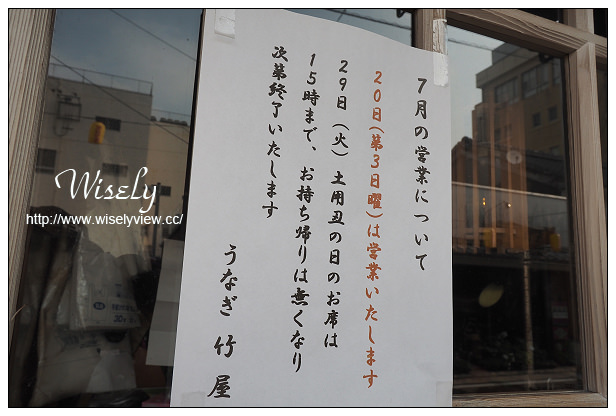 7月の営業について
20日(第3日曜)は営業いたします
29日(火)土用丑の日のお席は
15時まで、お持ち帰りは無くなり
次第終了いたします
うなぎ 竹屋
Wisely
http://www.wiselyview.cc/